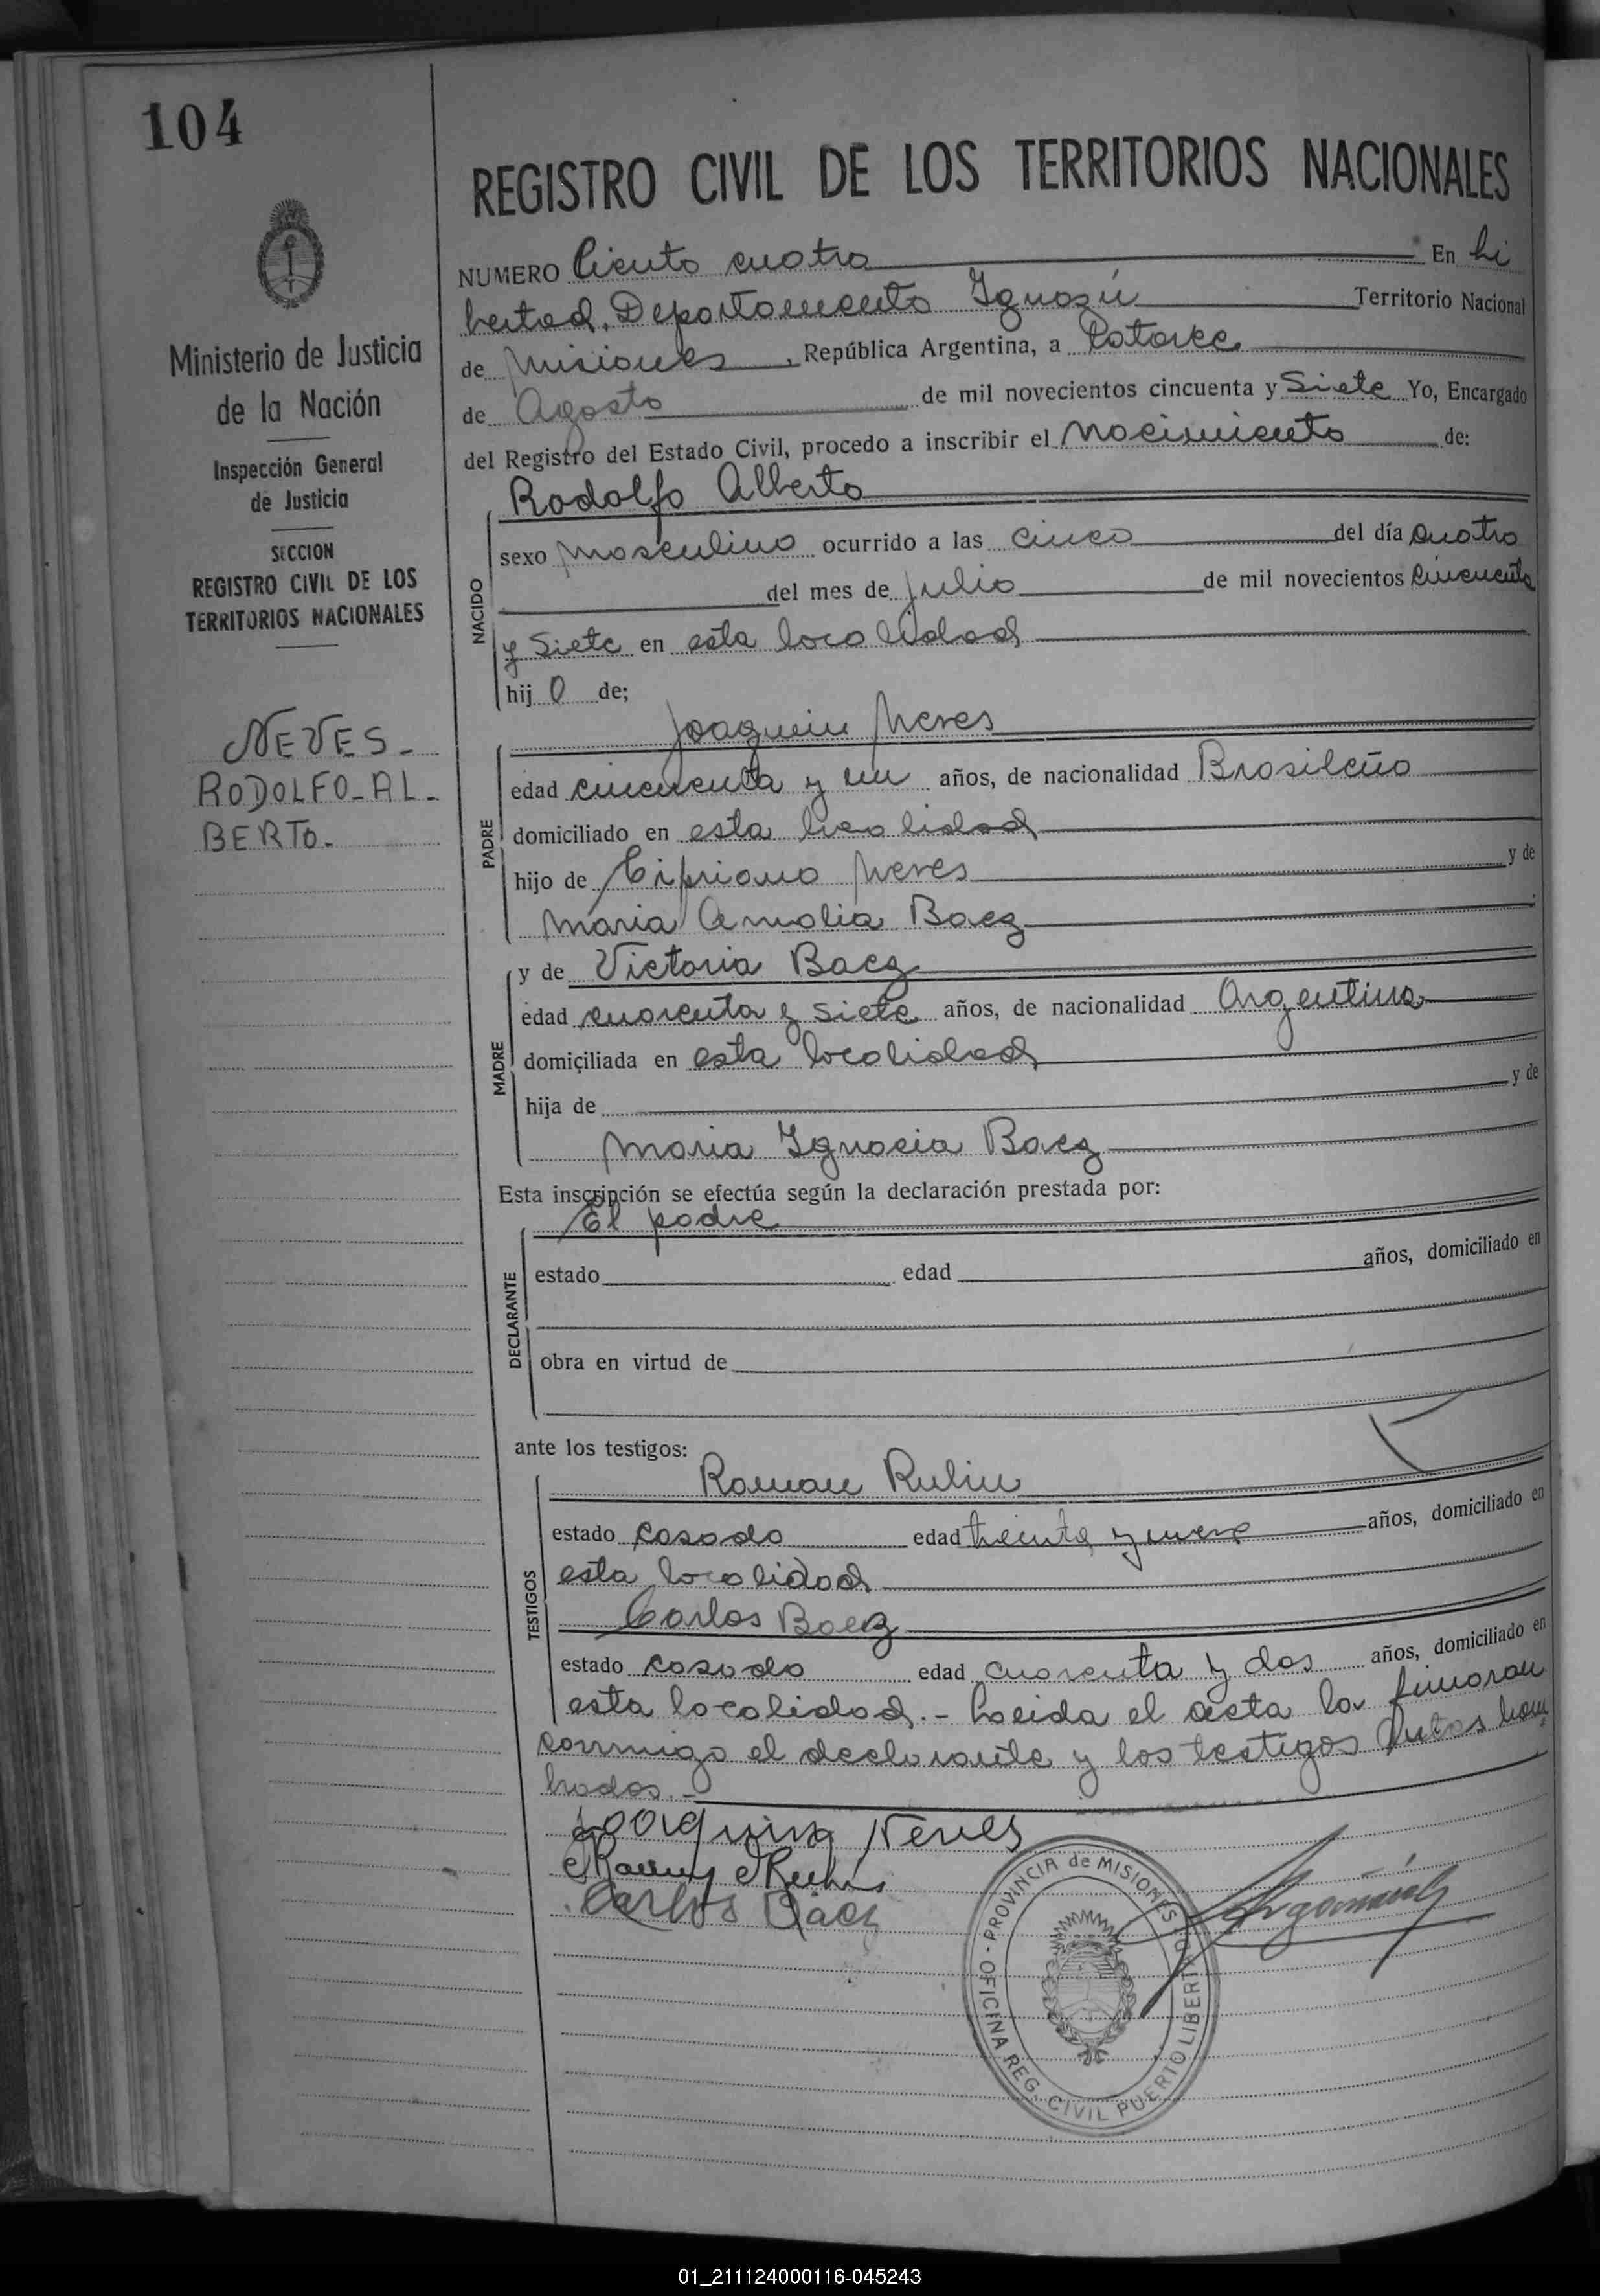 104
Ministerio de Justicia
de la Nación
Inspección General
de Justicia
SECCION
REGISTRO CIVIL DE LOS
TERRITORIOS NACIONALES
NEVES-
RODOLFO-AL-
BERTO.
REGISTRO CIVIL DE LOS TERRITORIOS NACIONALES
NUMERO Ciento cuatro En Li
bertad, Departamento Iguazú Territorio Nacional
de Misiones, República Argentina, a Catorce
de Agosto de mil novecientos cincuenta y Siete Yo, Encargado
del Registro del Estado Civil, procedo a inscribir el Nacimiento de:
Rodolfo Alberto
NACIDO
sexo masculino ocurrido a las cinco del día cuatro
del mes de Julio de mil novecientos cincuenta
y Siete en esta localidad
hij o de;
Joaquin Neves
PADRE
edad cincuenta y un años, de nacionalidad Brasileño
domiciliado en esta localidad
hijo de Cipriano Neves y de
Maria Amalia Baez
MADRE
y de Victoria Baez
edad cuarenta y siete años, de nacionalidad Argentina
domiciliada en esta localidad
hija de y de
Maria Ignacia Baez
Esta inscripción se efectúa según la declaración prestada por:
El padre
DECLARANTE
estado edad años, domiciliado en
obra en virtud de
ante los testigos:
Roman Rulin
TESTIGOS
estado casado edad treinta y nueve años, domiciliado en
esta localidad
Carlos Baez
estado casado edad cuarenta y dos años, domiciliado en
esta localidad.- Leida el acta la firmaron
conmigo el declarante y los testigos antes nom
brados.-
Joaquin Neves
Carlos Baez
PROVINCIA de MISIONES - OFICINA REG. CIVIL PUERTO LIBERTAD
01_211124000116-045243